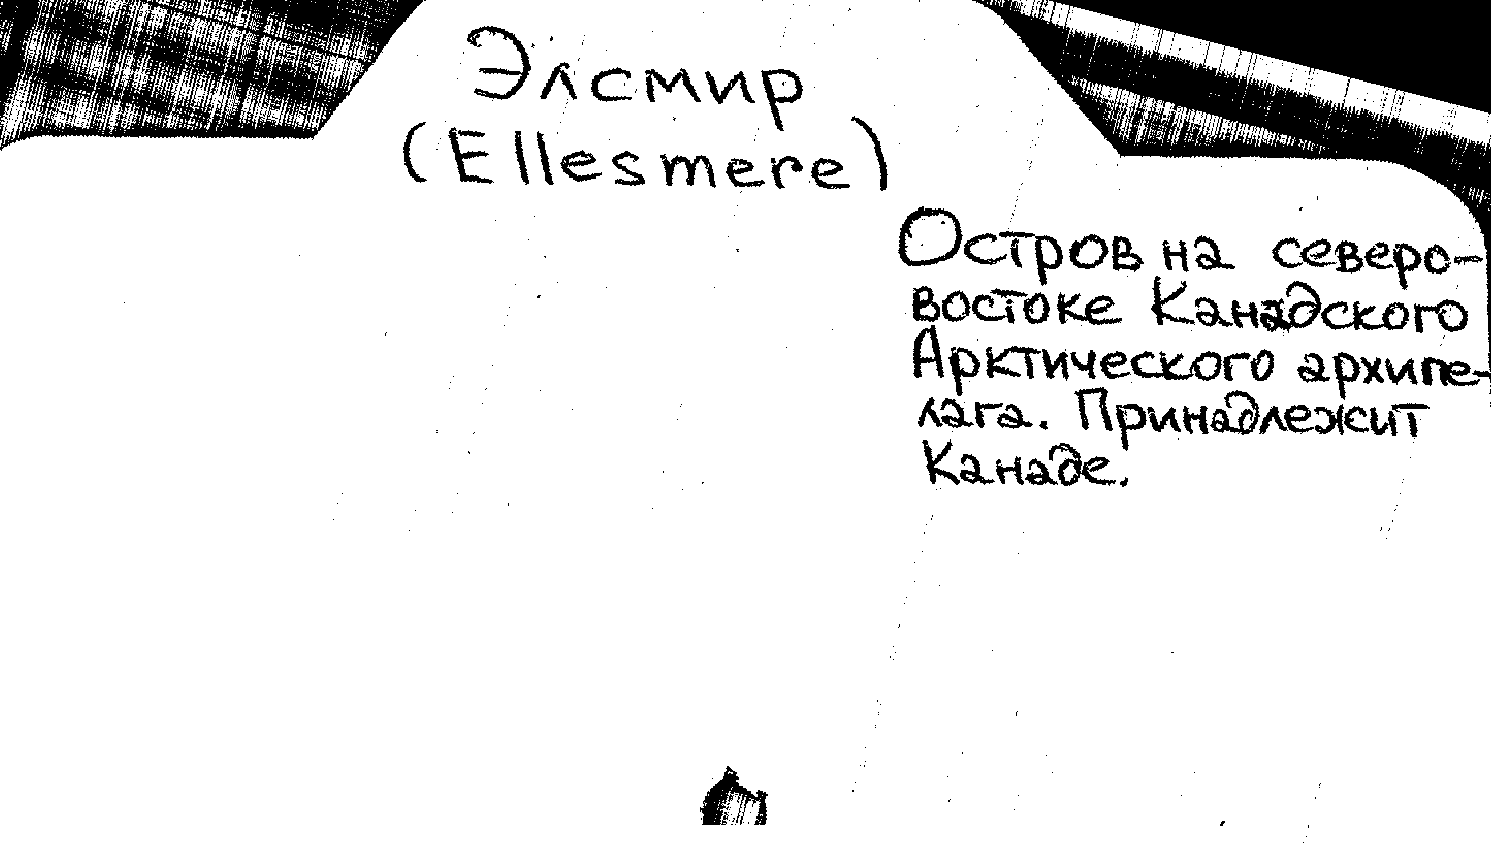 Элсмир
(Ellesmere)
Остров на северо-
востоке Канадского
Арктического архипе-
лага. Принадлежит
Канаде.